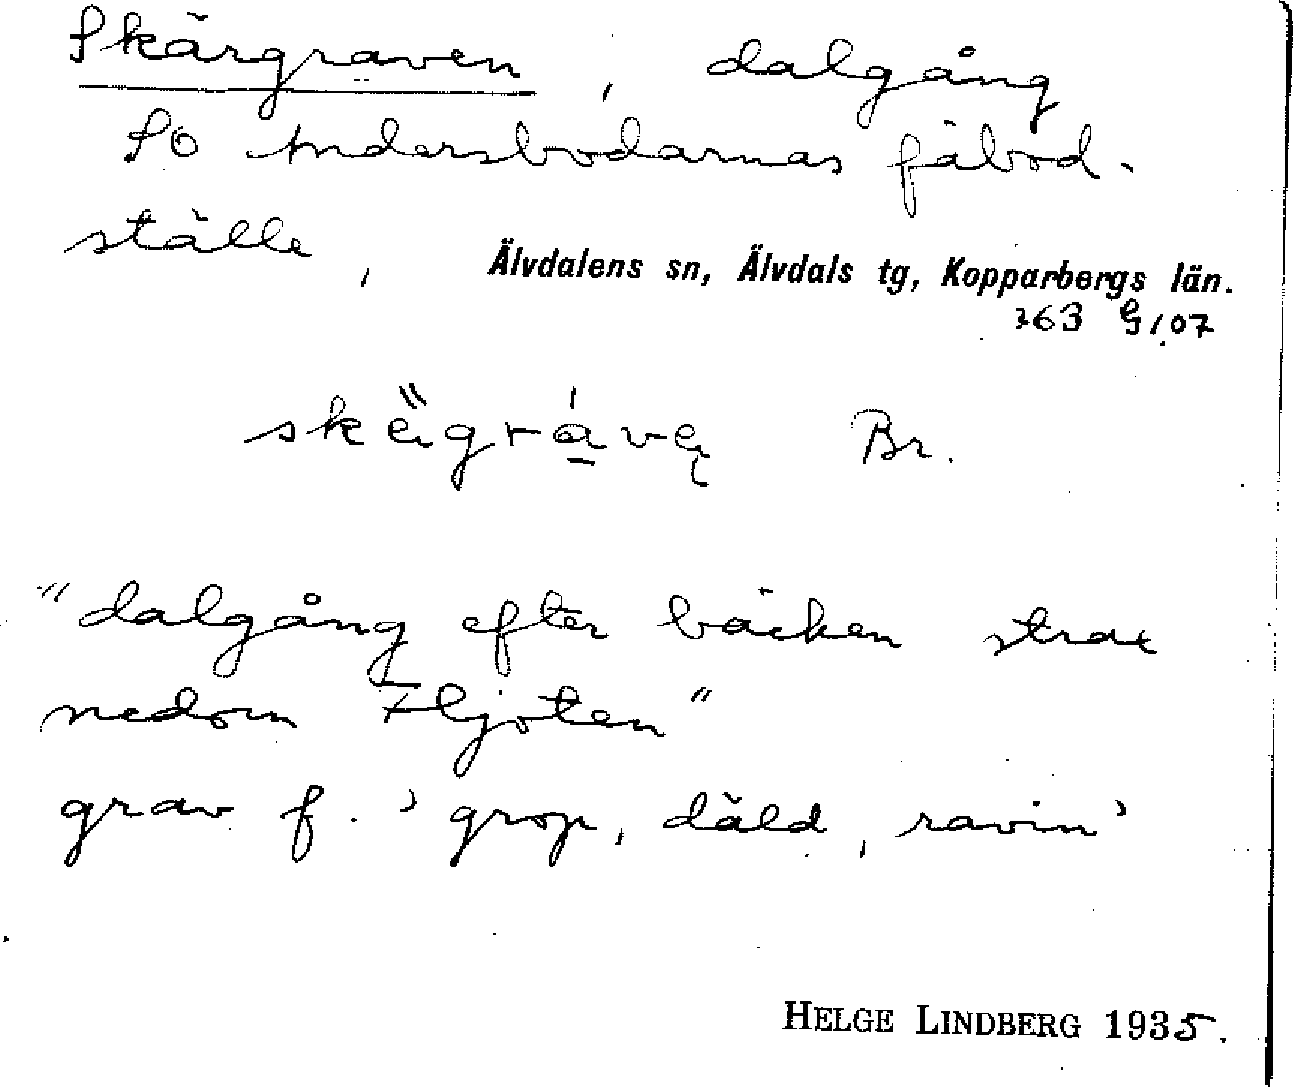 Skärgraven, dalgång
SO Andersbodarnas fäbod-
ställe, Älvdalens sn, Älvdals tg, Kopparbergs län.
763 G/07
Br.
"dalgång efter bäcken strax
nedom Fljoten"
grav f. 'grop, däld, ravin'
HELGE LINDBERG 1935.